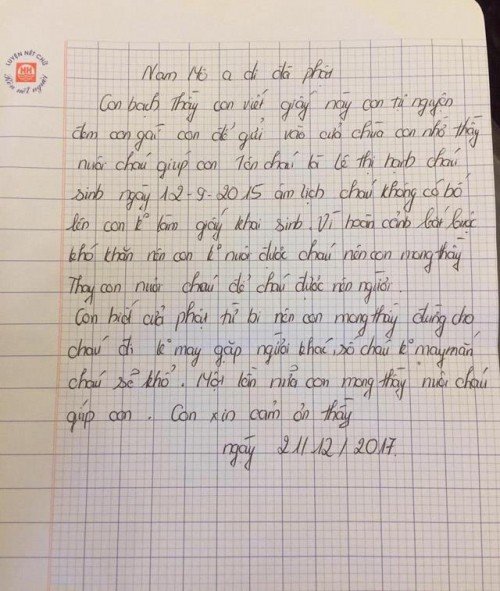 LUYỆN NÉT CHỮ
NH
Rèn nết người
Nam Mô a di đà phật
Con bạch Thầy con viết giấy này con tự nguyện
đem con gái con đẻ gửi vào cửa chùa con nhờ thầy
nuôi cháu giúp con Tên cháu là Lê thị hạnh cháu
sinh ngày 12-9-2015 âm lịch cháu không có bố
lên con k° làm giấy khai sinh. Vì hoàn cảnh bắt buộc
khó khăn nên con k° nuôi được cháu nên con mong thầy
Thay con nuôi cháu để cháu được nên người.
Con biết cửa phật từ bi nên con mong thầy đừng cho
cháu đi k° may gặp người khác, số cháu k° may mắn
cháu sẽ khổ. Một lần nữa con mong thầy nuôi cháu
giúp con. Con xin cảm ơn thầy
ngày 21/12/2017.